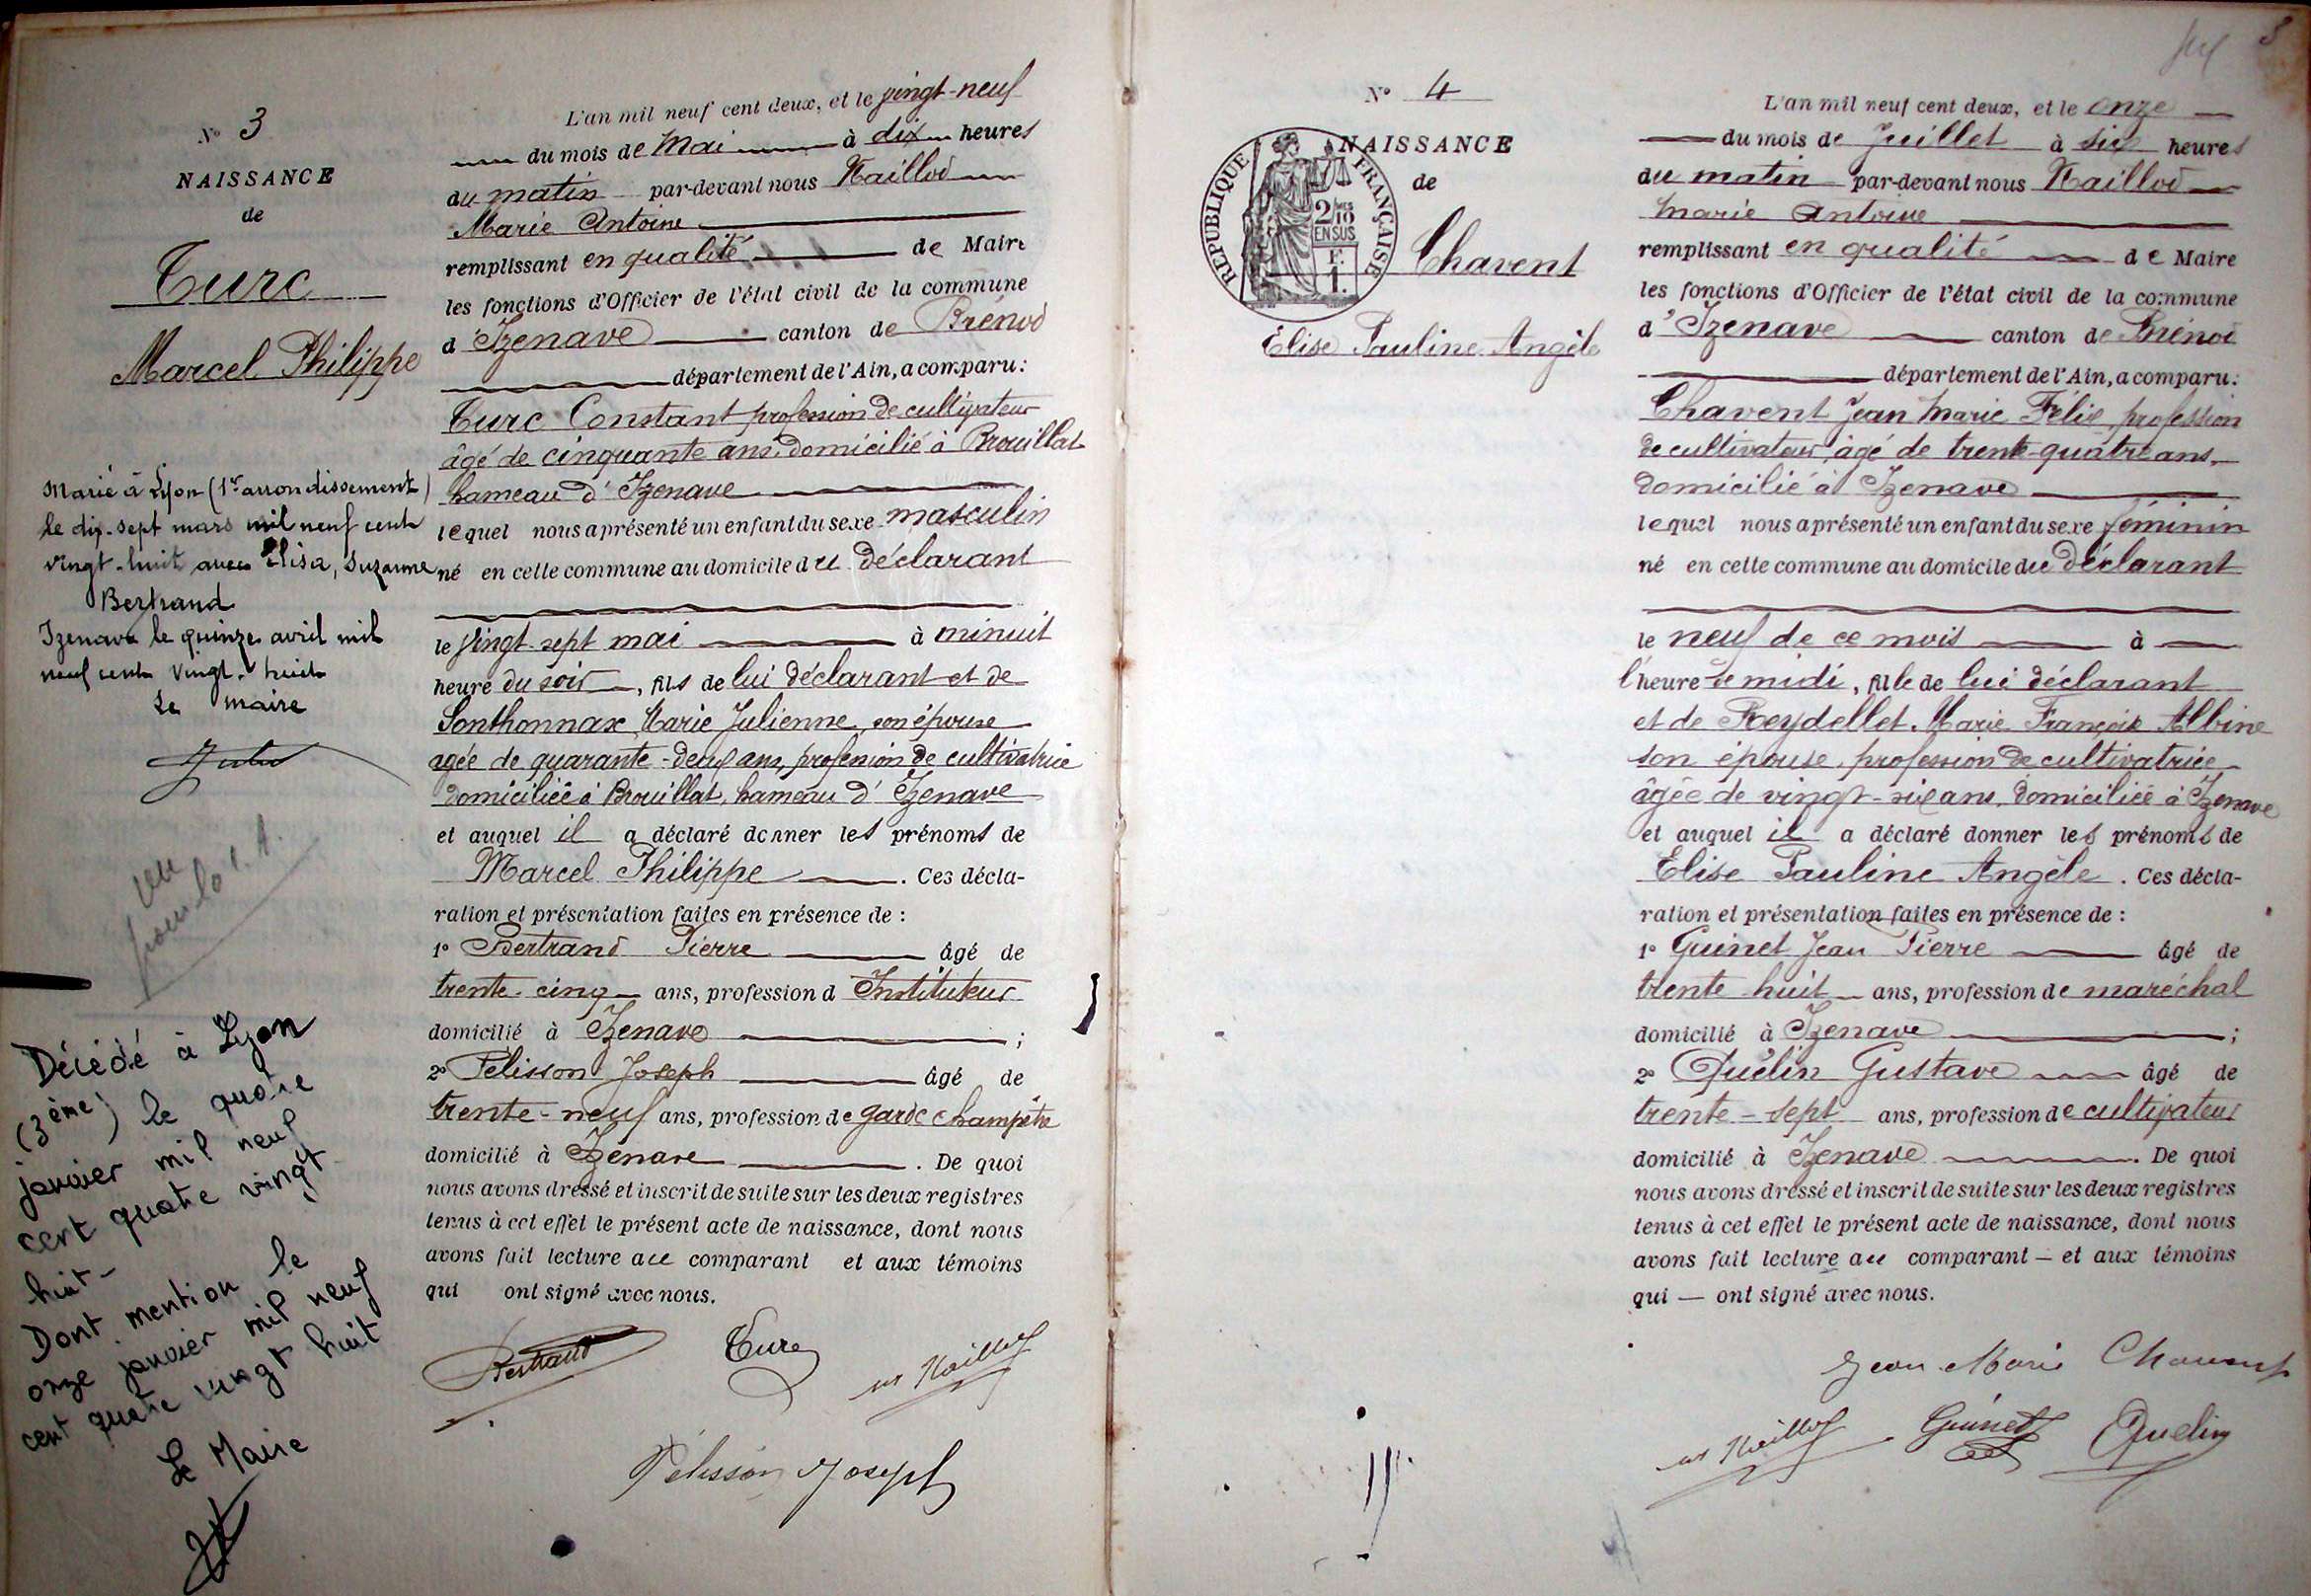 N° 3
NAISSANCE
de
Turc
Marcel Philippe
Marié à Lyon (1er arrondissement)
le dix-sept mars mil neuf cent
vingt-huit avec Elisa, Suzanne
Bertrand
Izenave le quinze avril mil
neuf cent vingt-huit
Le maire
Vu
Décédé à Lyon
(3ème) le quatre
janvier mil neuf
cent quatre vingt
huit-
Dont mention le
onze janvier mil neuf
cent quatre vingt huit
Le Maire
L'an mil neuf cent deux, et le vingt-neuf
du mois de Mai à dix heures
du matin par-devant nous Maillod
Marie Antoine
remplissant en qualité de Maire
les fonctions d'Officier de l'état civil de la commune
d'Izenave canton de Brénod
département de l'Ain, a comparu:
Turc Constant profession de cultivateur
âgé de cinquante ans, domicilié à Brouillat
hameau d'Izenave
lequel nous a présenté un enfant du sexe masculin
né en cette commune au domicile du déclarant
le vingt-sept mai à minuit
heure du soir, fils de lui déclarant et de
Sonthonnax Marie Julienne, son épouse
agée de quarante-deux ans, profession de cultivatrice
domiciliée à Brouillat, hameau d'Izenave
et auquel il a déclaré donner les prénoms de
Marcel Philippe. Ces décla-
ration et présentation faites en présence de :
1° Bertrand Pierre âgé de
trente-cinq ans, profession d Instituteur
domicilié à Izenave ;
2° Pélisson Joseph âgé de
trente-neuf ans, profession de garde champêtre
domicilié à Izenave. De quoi
nous avons dressé et inscrit de suite sur les deux registres
tenus à cet effet le présent acte de naissance, dont nous
avons fait lecture au comparant et aux témoins
qui ont signé avec nous.
Bertrand Turc Maillod
Pélisson Joseph
3
N° 4
NAISSANCE
de
RÉPUBLIQUE FRANÇAISE
2/10
EN SUS
F.
1.
Chavent
Elise Pauline Angèle
L'an mil neuf cent deux, et le onze
du mois de Juillet à six heures
du matin par-devant nous Maillod
Marie Antoine
remplissant en qualité de Maire
les fonctions d'Officier de l'état civil de la commune
d'Izenave canton de Brénod
département de l'Ain, a comparu:
Chavent Jean Marie Félix, profession
de cultivateur, âgé de trente-quatre ans,
domicilié à Izenave
lequel nous a présenté un enfant du sexe féminin
né en cette commune au domicile du déclarant
le neuf de ce mois à
l'heure de midi, fille de lui déclarant
et de Reydellet Marie Françoise Albine
son épouse, profession de cultivatrice
âgée de vingt-six ans, domiciliée à Izenave
et auquel il a déclaré donner les prénoms de
Elise Pauline Angèle. Ces décla-
ration et présentation faites en présence de :
1° Guinet Jean Pierre âgé de
trente-huit ans, profession de maréchal
domicilié à Izenave ;
2° Quélin Gustave âgé de
trente-sept ans, profession de cultivateur
domicilié à Izenave. De quoi
nous avons dressé et inscrit de suite sur les deux registres
tenus à cet effet le présent acte de naissance, dont nous
avons fait lecture au comparant — et aux témoins
qui — ont signé avec nous.
Jean Marie Chavent
Maillod Guinet Quelin